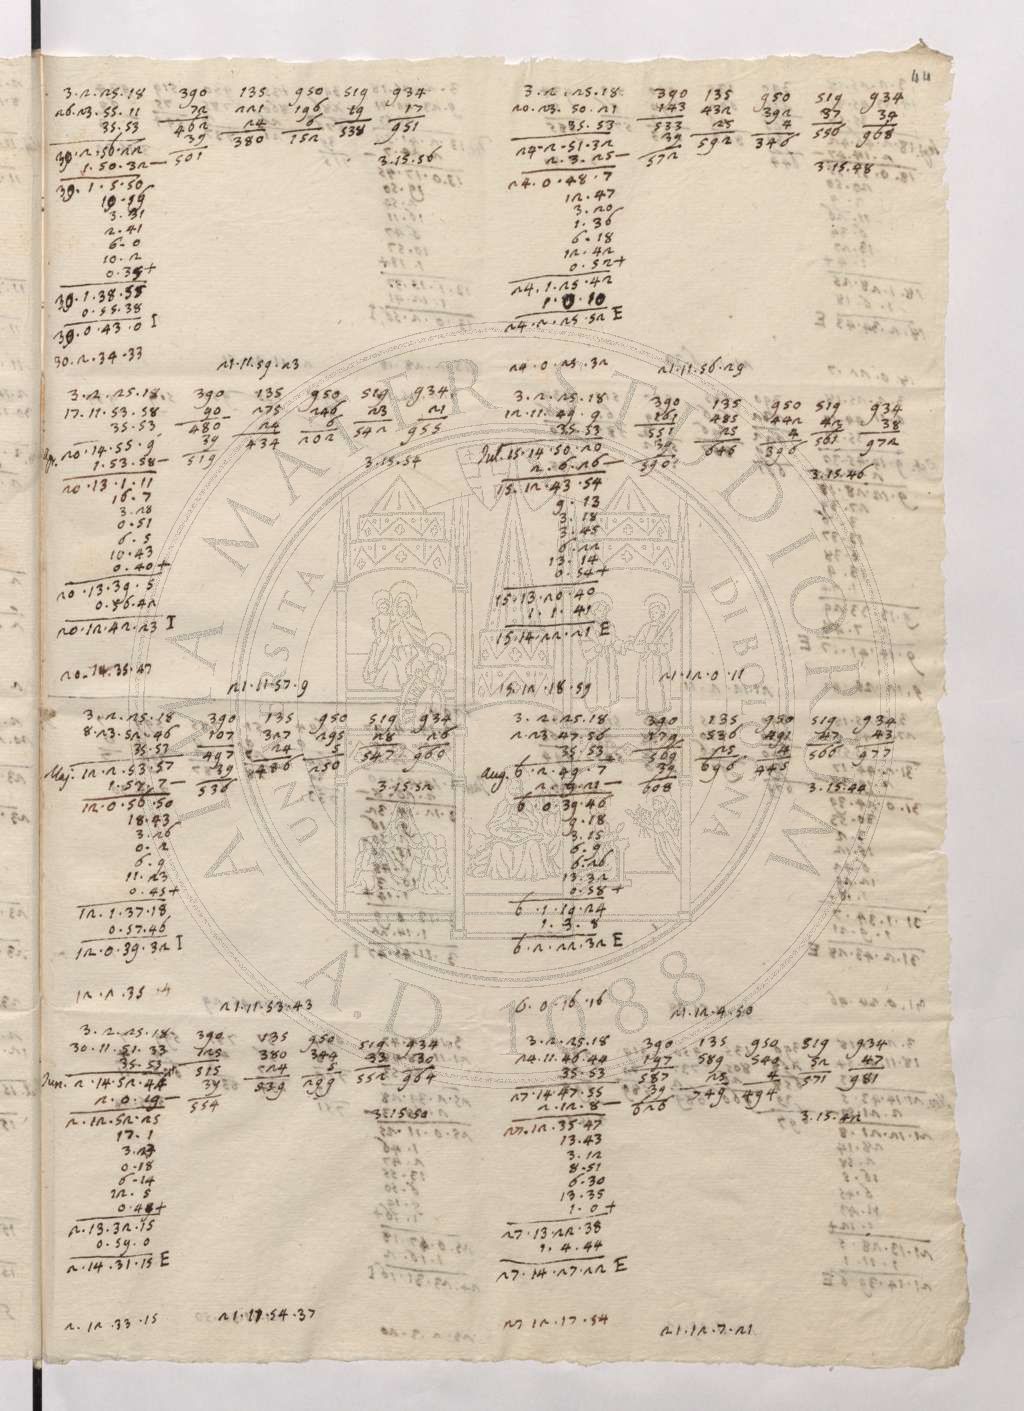 44
3.2.25.18 390 135 950 519 934
26.23.55.11 72 221 196 19 17
35.53 462 24 6 538 951
30.2.56.22 39 380 152
1.50.32— 501 3.15.56
30.1.5.50
3.31
2.41
6.0
10.2
0.35+
0.55.38
30.0.43.0 I
30.2.34.33 21.11.59.23
3.2.25.18 390 135 950 519 934
20.23.50.21 143 432 392 37 34
35.53 533 25 4 556 968
24.2.51.32 39 592 346
2.3.25— 572 3.15.48
24.0.48.7
12.47
3.20
1.36
6.18
12.42
0.52+
24.1.25.42
1.0.10
24.2.25.52 E
24.0.23.32 21.11.56.29
3.2.25.18 390 135 950 519 934
17.11.53.58 90 275 246 23 21
35.53 480 24 6 542 955
Apr. 20.14.55.9 39 434 202
1.53.58— 519 3.15.54
20.13.1.11
16.7
3.28
0.51
6.5
10.43
0.40+
20.13.39.5
0.56.42
20.12.42.23 I
20.14.35.47 21.11.57.9
3.2.25.18 390 135 950 519 934
12.11.49.9 161 485 442 42 38
35.53 551 25 4 561 972
Jul. 15.14.50.20 39 646 396
2.6.26— 590 3.15.46
15.12.43.54
9.13
3.18
3.45
6.22
13.14
0.54+
15.13.20.40
1.1.41
15.14.22.21 E
15.12.18.59 21.12.0.11
3.2.25.18 390 135 950 519 934
8.23.52.46 107 327 295 28 26
35.53 497 24 5 547 960
Maj. 12.2.53.57 39 486 250
1.57.7— 536 3.15.52
12.0.56.50
18.43
3.26
0.2
6.9
11.23
0.45+
12.1.37.18
0.57.46
12.0.39.32 I
12.2.35.4 21.11.53.43
3.2.25.18 390 135 950 519 934
2.23.47.56 179 536 491 47 43
35.53 569 25 4 566 977
Aug. 6.2.49.7 39 696 445
2.9.21— 608 3.15.44
6.0.39.46
9.18
3.15
6.9
6.26
13.32
0.58+
6.1.19.24
1.3.8
6.2.22.32 E
6.0.16.16 21.12.4.50
3.2.25.18 390 135 950 519 934
30.11.51.33 125 380 344 33 30
35.53 515 24 5 552 964
Jun. 2.14.52.44 39 539 299
2.0.19— 554 3.15.50
2.12.52.25
17.1
3.23
0.18
6.14
12.5
0.48+
2.13.32.15
0.59.0
2.14.31.15 E
2.12.33.15 21.11.54.37
3.2.25.18 390 135 950 519 934
24.11.46.44 197 589 540 52 47
35.53 587 25 4 571 981
27.14.47.55 39 749 494
2.12.8— 626 3.15.42
27.12.35.47
13.43
3.12
8.51
6.30
13.35
1.0+
27.13.22.38
1.4.44
27.14.27.22 E
27.12.17.54 21.12.7.21
ALMA MATER STUDIORUM
UNIVERSITÀ DI BOLOGNA
A.D. 1088